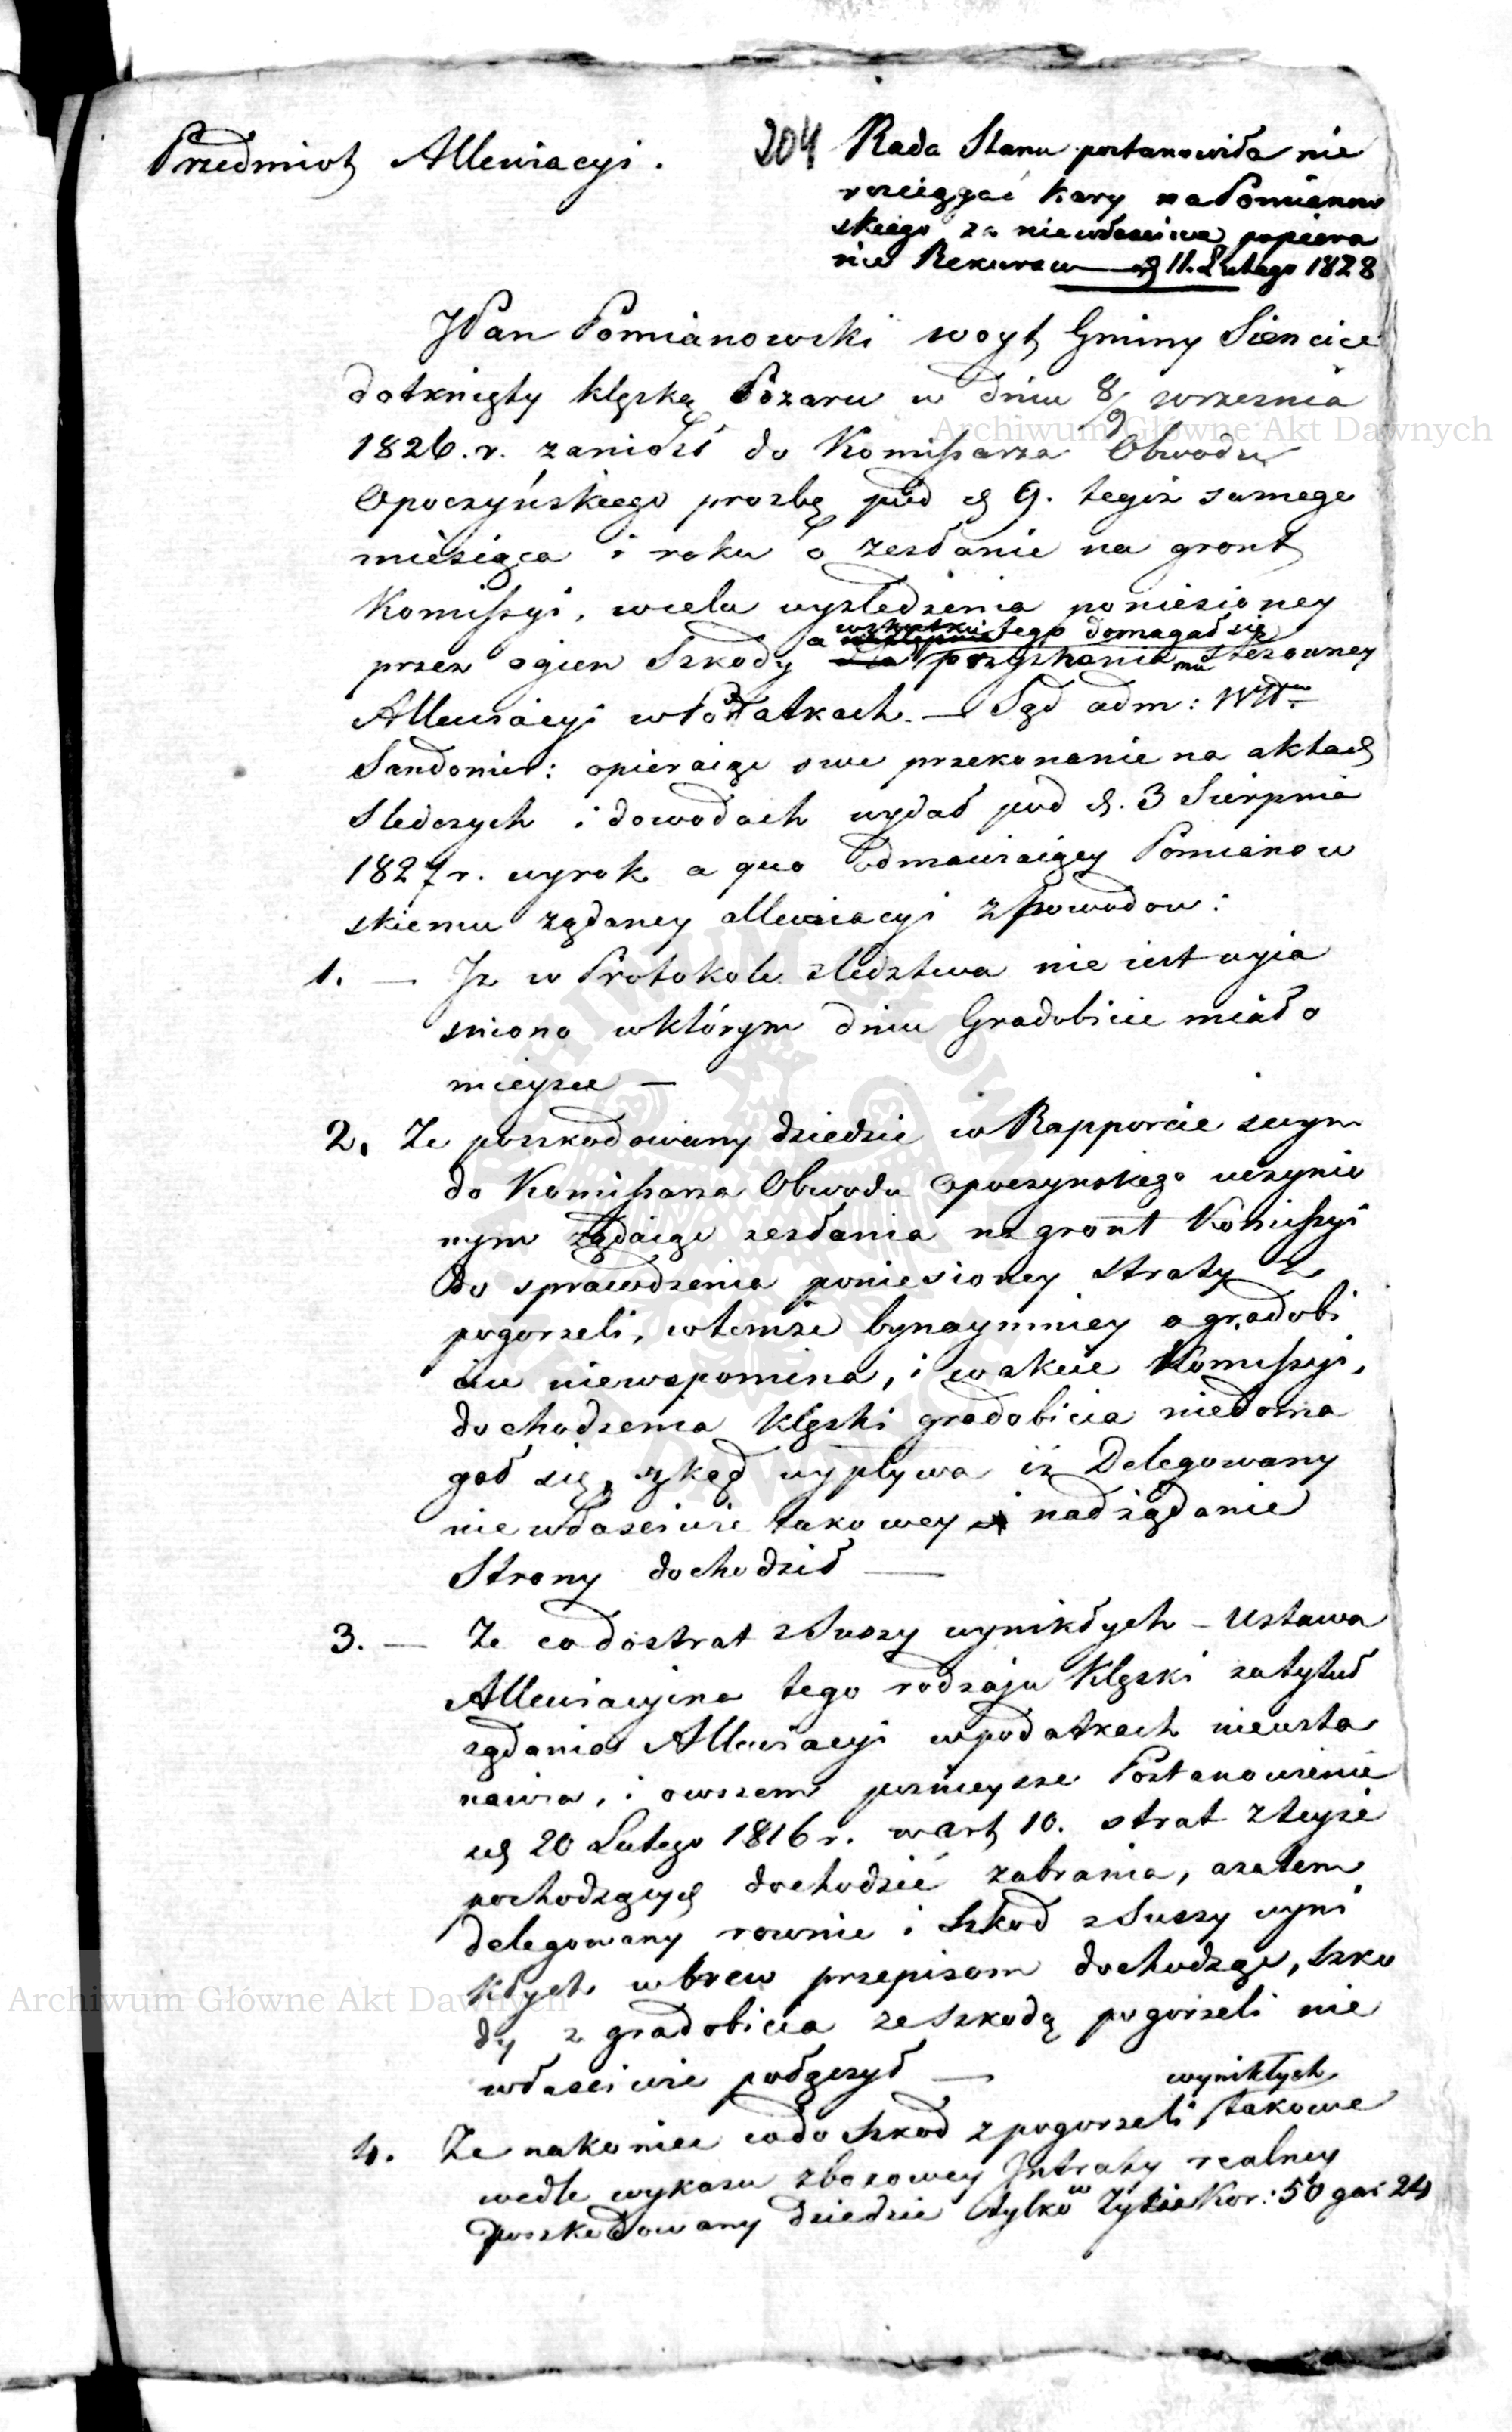 Przedmiot Allewiacyi.
204 Rada Stanu postanowiła nie
rościągać kary na Pomianow
skiego za niewłaściwe popiera
nie Rekursu d 11. Lutego 1828
JPan Pomianowski woyt Gminy Siencice
dotknięty klęską Pozaru w dniu 8/9 wrzesnia
1826. r. zaniósł do Komissarza Obwodu
Opoczyńskiego prozbę pod d 9. tegoż samego
miesiąca i roku o zesłanie na gront
Komissyi, wcelu wysledzenia poniesioney
przez ogien Szkody a wskutku tego domagał się
pozyskania mu stosowney
Allewiacyi w Podatkach. — Sąd adm: Wttwa
Sandomir: opieraiąc swe przekonanie na aktach
Sledczych i dowodach wydał pod d. 3 Sierpnia
1827 r. wyrok a quo odmawiaiący Pomianow
skiemu ządaney allewiacyi z powodow:
1. — Iz w Protokole sledztwa nie iest wyia
sniono wktórym dniu Gradobicie miało
mieysce —
2. Ze poszkodowany dziedzic w Rapporcie swym
do Komissarza Obwodu Opoczynskiego uczynio
nym ządaiąc zesłania na gront Komissyi
do sprawdzenia poniesioney straty z
pogorzeli, wtemże bynaymniey o gradobi
ciu niewspomina, i wakcie Komissyi,
dochodzenia klęski gradobicia niedoma
gał się, zkąd wypływa iż Delegowany
niewłasciwie takowey nad żądanie
Strony dochodził —
3. — Ze co do strat z Suszy wynikłych – Ustawa
Allewiacyina tego rodzaju Klęski zatytuł
ządania Allewiacyi wpodatkach nieusta
nawia, i owszem poźnieysze Postanowienie
z d 20 Lutego 1816 r. w art 10. strat z teyże
pochodzących dochodzić zabrania, azatem
delegowany rownie i szkod z Suszy wyni
kłych wbrew przepisom dochodząc, szko
dy z gradobicia ze szkodą pogorzeli nie
własciwie połączył —
4. Ze nakoniec codo szkod z pogorzeli wynikłych takowe
wedle wykazu zbozowey Intraty realney
poszkodowany dziedzic tylko w Zycie Kor: 50 gar 24
Archiwum Główne Akt Dawnych
Archiwum Główne Akt Dawnych